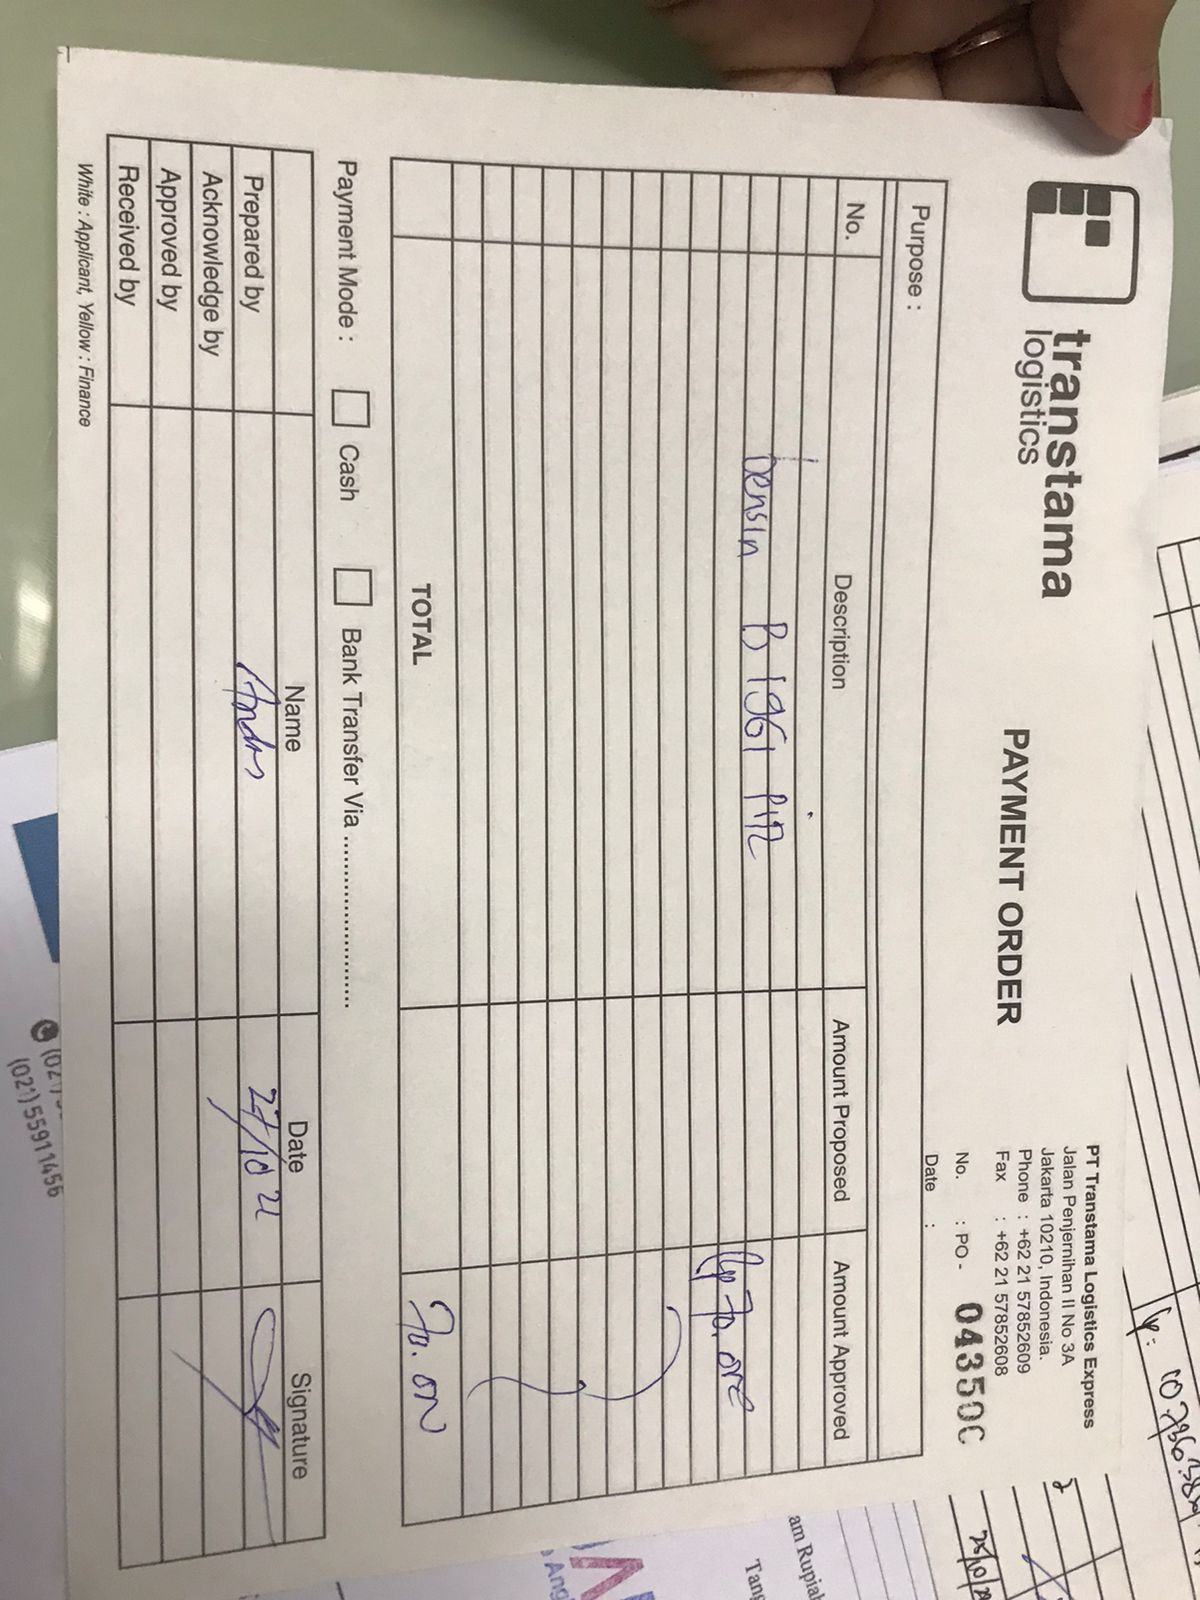 transtama
logistics
PAYMENT ORDER
PT Transtama Logistics Express
Jalan Penjernihan II No 3A
Jakarta 10210, Indonesia.
Phone : +62 21 57852609
Fax : +62 21 57852608
No. : PO - 04350C
Date :
Purpose :
No. Description Amount Proposed Amount Approved
bensin B 1961 Rp 70.
TOTAL 70.
Payment Mode : Cash Bank Transfer Via ........................
Name Date Signature
Prepared by 27/10
Acknowledge by
Approved by
Received by
White : Applicant, Yellow : Finance
(021) 55911456
am Rupiah